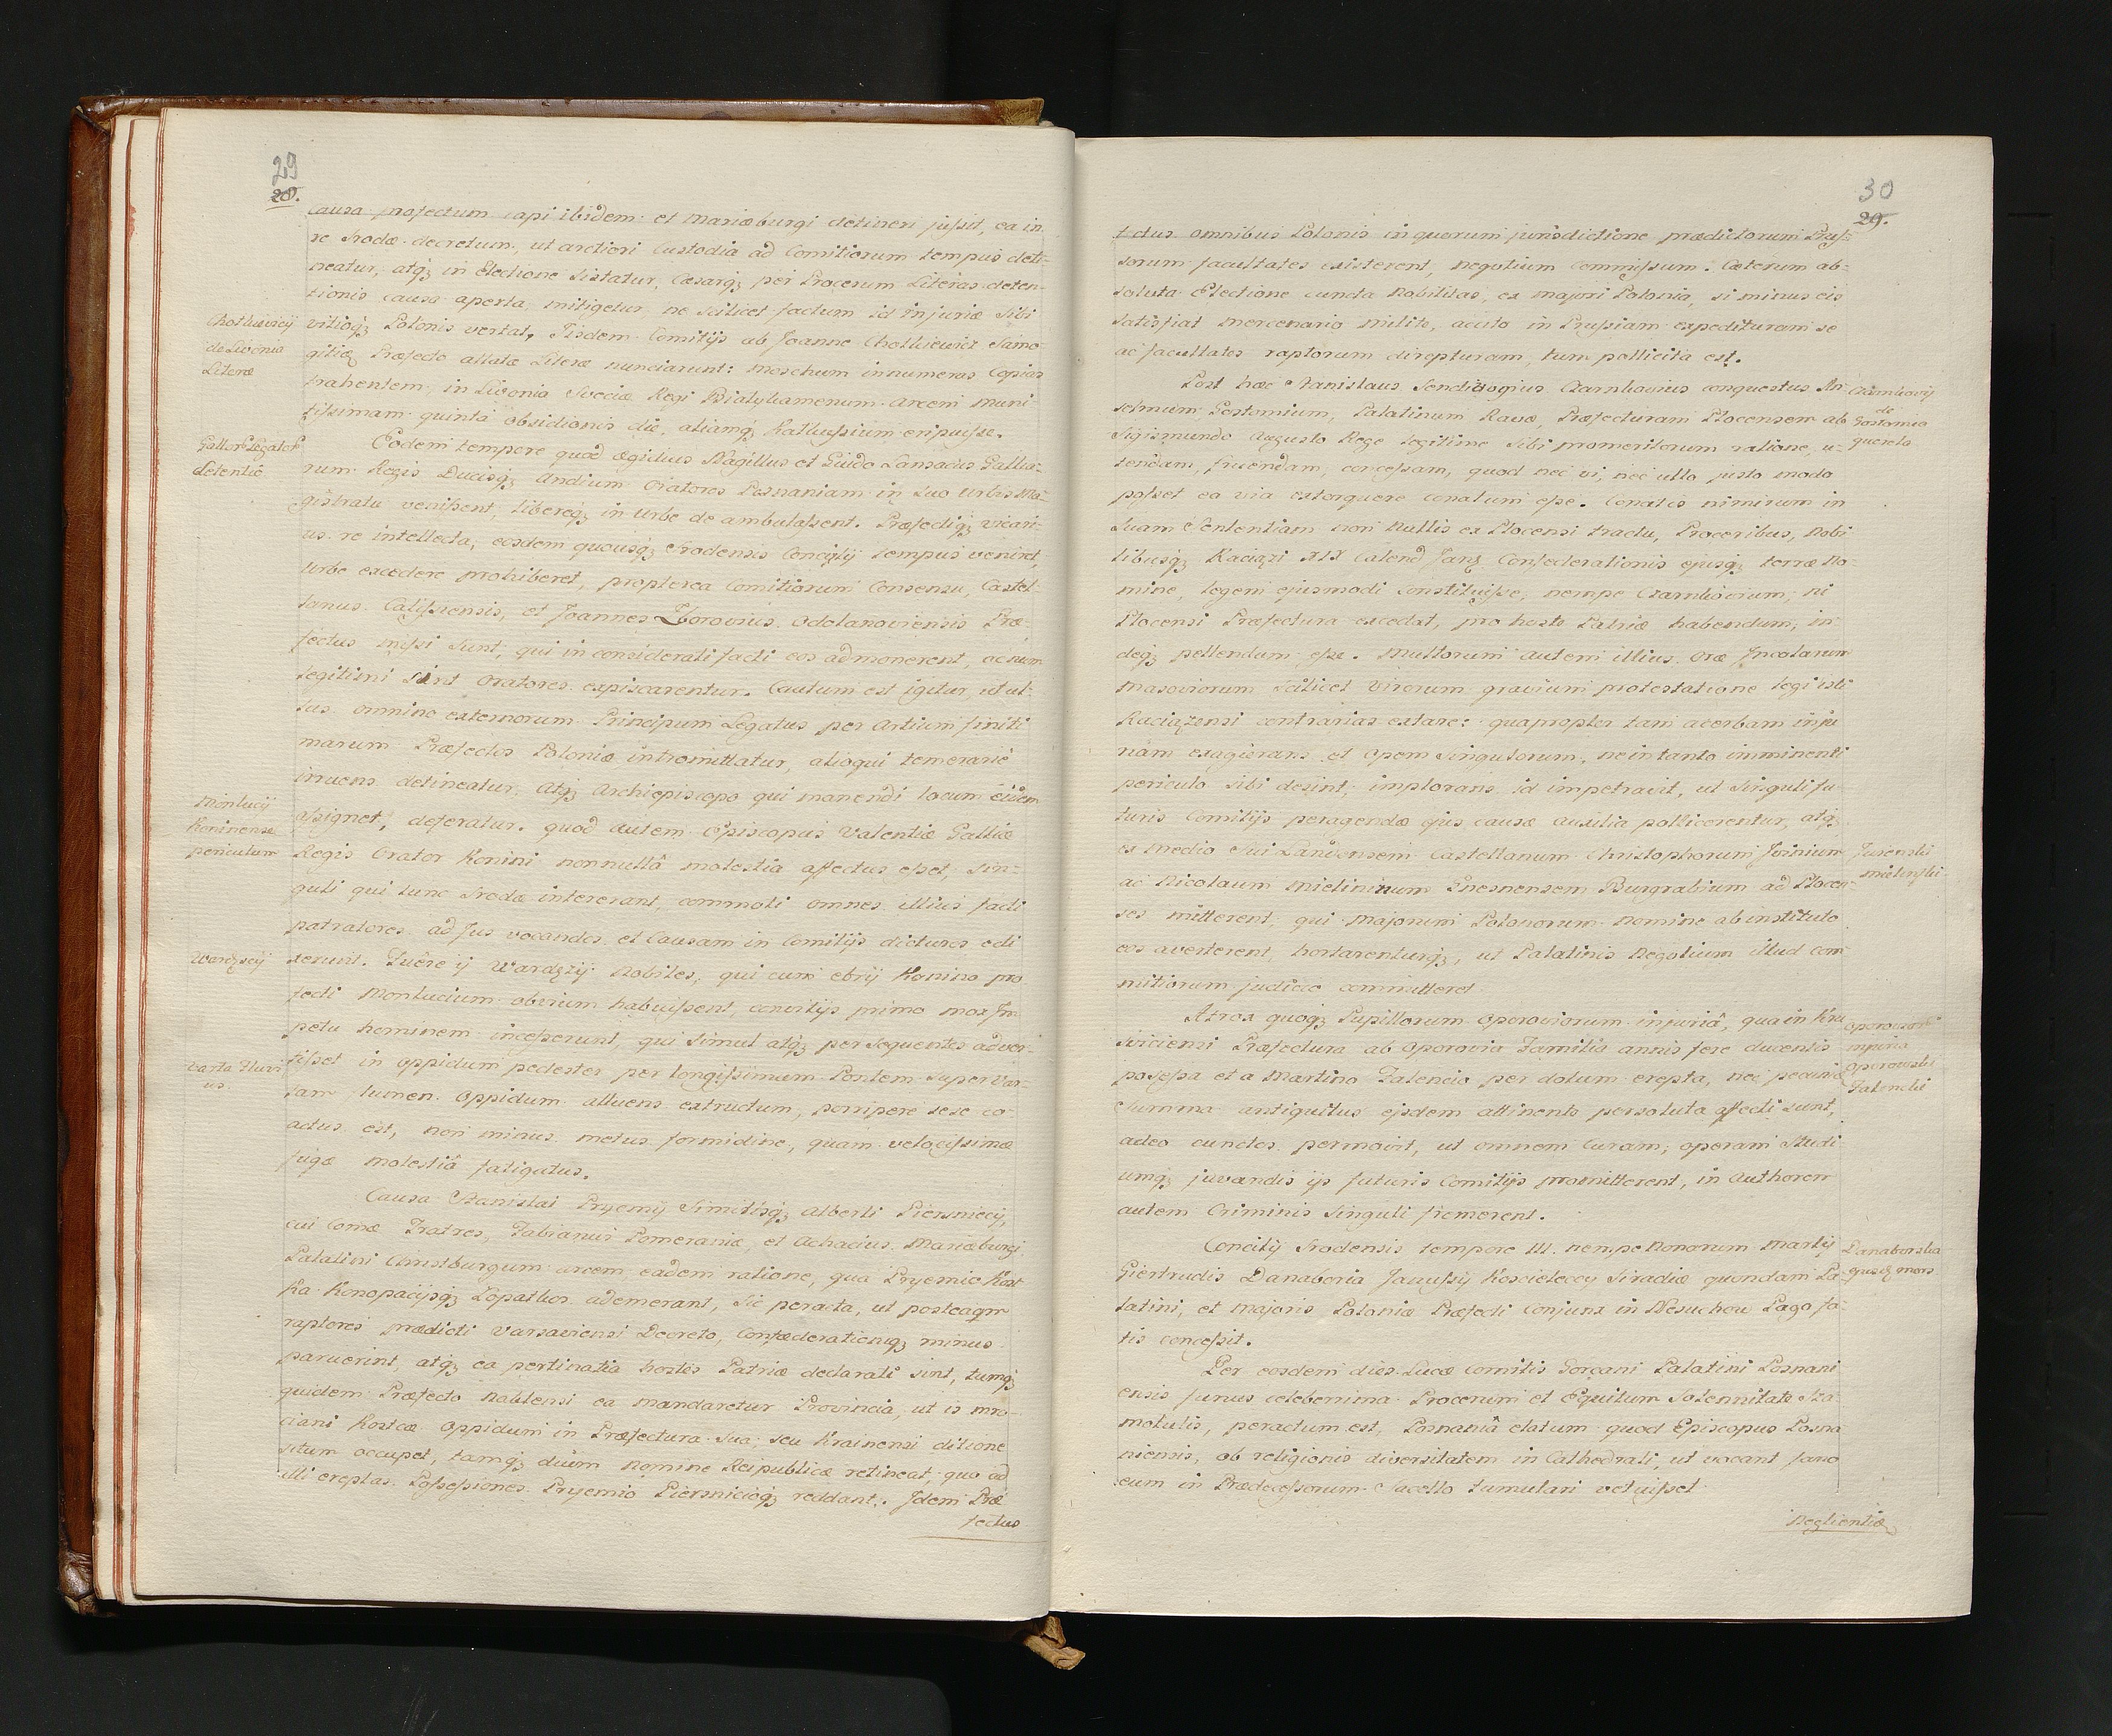 29
28.
causa profectum capi ibidem et Mariæburgi detineri jussit, ea in
re Srodæ decretum, ut arctiori Custodia ad Comitiorum tempus deti-
neatur, atqȝ in Electione Sistatur, Cæsarqȝ per Procerum Literas deten-
tionis causa aperta, mitigetur, ne Scilicet factum id injuriæ Sibi
Chotkievicij
de Livonia
Literæ
vitioqȝ Polonis vertat. Iisdem Comitijs ab Joanne Chotkiewicz Samo-
gitiæ Præfecto allatæ Literæ nunciarunt: Moschum innumeras Copias
trahentem in Livonia Sveciæ Regi Bialykamenum Arcem muni-
tissimam quintâ obsidionis die, aliamqȝ Katkussium eripuisse.
Detentio
Eodem tempore quod Ægidius Nagillus et Guido Lansacus Gallia-
rum Regis Ducisqȝ Andium Oratores Posnaniam in Suo Urbis Ma-
gistratu venissent, libereqȝ in Urbe de ambulassent. Præfectiqȝ vicari-
us re intellecta, eosdem quousqȝ Srodensis Concilij tempus veniret,
Urbe excedere prohiberet, propterea Comitiorum Consensu, Castel-
lanus Calissiensis, et Joannes Zborovius Odolanoviensis Præ-
fectus missi Sunt, qui in considerati facti eos admonerent, ac num
legitimi Sint Oratores expiscarentur. Cautum est igitur, ut ul-
lus omnino externorum Principum Legatus per Artium finiti
marum Præfectos Poloniæ intromittatur, alioqui temerarie
irruens detineatur, Atqȝ Archiepiscopo qui manendi locum eisdem
Monlucij
Koninense
periculum
assignet, deferatur. quod autem Episcopus Valentiæ Galliæ
Regis Orator Konini nonnullâ molestia affectus esset, Sin-
guli qui tunc Srodæ intererant, commoti omnes illius facti
patratores ad Jus vocandos et Causam in Comitijs dicturos edi
Wardzscij
xerunt. Fuêre ij Wardzij Nobiles, qui cum ebrij Konino pro
fecti Monlucium obvium habuissent, convitijs primo mox Im-
petu hominem incesserunt, qui Simul atqȝ persequentes adver-
Varta Fluvi
us.
tisset in oppidum pedester per longissimum Pontem Super Var-
tam lumen Oppidum alluens extructum, porripere sese co-
actus est, non minus metus formidine, quam velocissimæ
fugæ molestiâ fatigatus.
Causa Stanislai Pryemij Similisqȝ Alberti Piersnicij,
cui Comæ Fratres, Fabianus Pomeraniæ, et Achacius Mariæburgi
Palatini Christburgum arcem eadem ratione, qua Pryemio Kost
ka Konopacijsqȝ Lopatkos ademerant, Sic peracta, ut posteaqm
raptores prædicti Varsaviensi Decreto, Confœderationiqȝ minus
paruerint, atqȝ ea pertinatia hostes Patriæ declarati sint, tumqȝ
quidem Præfecto Naklensi ea mandaretur Provincia, ut is mu-
ciani Kostcæ Oppidum in Præfectura Sua, seu Krainensi ditione
situm occupet, tamqȝ diûm Nomine Reipublicæ retineat, quo ad
illi ereptas Possessiones Pryemio Piersnicioqȝ reddant. Idem Præ
fectus
30
29.
tctus omnibus Polonis in quorum jurisdictione prædictorum Prus-
sorum facultates existerent, negotium commissum. Cæterum ab-
soluta Electione cuncta Nobilitas, ex majori Polonia, si minus eis
satisfiat mercenario milite, acuto in Prussiam expedituram se
ac facultates raptorum direpturam, tum pollicita est.
Post hæc Stanislaus Sendivogius Czarnkovius conquestus An-
selmum Gostomium, Palatinum Ravæ, Præfecturam Plocensem ab
Sigismundo Augusto Rege legitime Sibi promeritorum ratione, u-
tendam, fruendam, concessam, quod nec vi, nec ullo justo modo
posset ea via extorquere conatum esse. Conatis nimirum in
Czarnkovij
de
Gostomio
querela
Suam Sententiam non nullis ex Plocensi tractu, Proceribus, Nobi
libusqȝ Raciązi XIX Calend Janȝ Confœderationis ejusqȝ terræ No-
mine, legem ejusmodi constituisse, nempe Czarnkovium, ni
Plocensi Præfectura excedat, pro hoste Patriæ habendum, in-
deqȝ pellendum esse. Multorum autem illius Oræ Incolarum
Masoviorum Scilicet Virorum gravium protestatione legi isti
Raciązensi contrarias extare: quapropter tam acerbam inju
riam exagierans et Opem Singulorum, ne in tanto imminenti
periculo Sibi desint, implorans id impetravit, ut Singuli fu
turis Comitijs peragendæ ejus causæ auxilia pollicerentur, atqȝ
ex medio Sui Landensem Castellanum Christophorum Ivinium
ac Nicolaum Mielininum Gnesnensem Burgrabium ad Plocen-
ses mitterent, qui Majorum Polonorum Nomine ab instituto
eos averterent, hortarenturqȝ, ut Palatinis Negotium illud com
mitiorum judicio committeret.
Atrox quoqȝ Pupillorum Oporoviorum injuriâ, qua in Kru
sviciensi Præfectura ab Oporovia Familia annis fere ducentis
possessa et a Martino Falencio per dolum erepta, nec pecuniæ
Summa antiquitus ejsdem attinente persoluta affecti sunt,
Oporoviorum
injuria
Oporowski
Falenski
adeo cunctos permovit, ut omnem Curam, operam Studi
umqȝ juvandis ijs futuris Comitijs promitterent, in Authorem
autem Criminis Singuli fremerent.
Concilij Srodensis tempore III. nempe Nonarum Martij
Giertrudis Danaboria Janussij Koscieleccy Siradiæ quondam Pa
latini, et majoris Poloniæ Præfecti Conjunx in Wesuchow Pago fa-
tis concessit.
Danaborska
ejusqȝ mors
Per eosdem dies Lucæ Comitis Gorcani Palatini Posnani
ensis funus celeberrima Procerum et Equitum Solennitate Sza-
motulis, peractum est, Posnaniâ elatum quod Episcopus Posna
niensis, ob religionis diversitatem in Cathedrali, ut vocant fano
eum in Prædecessorum Sacello tumulari vetuisset.